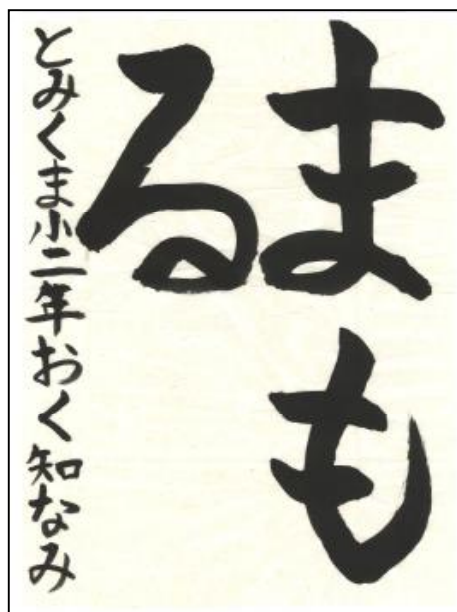 まも
る
とみくま小二年おく知なみ